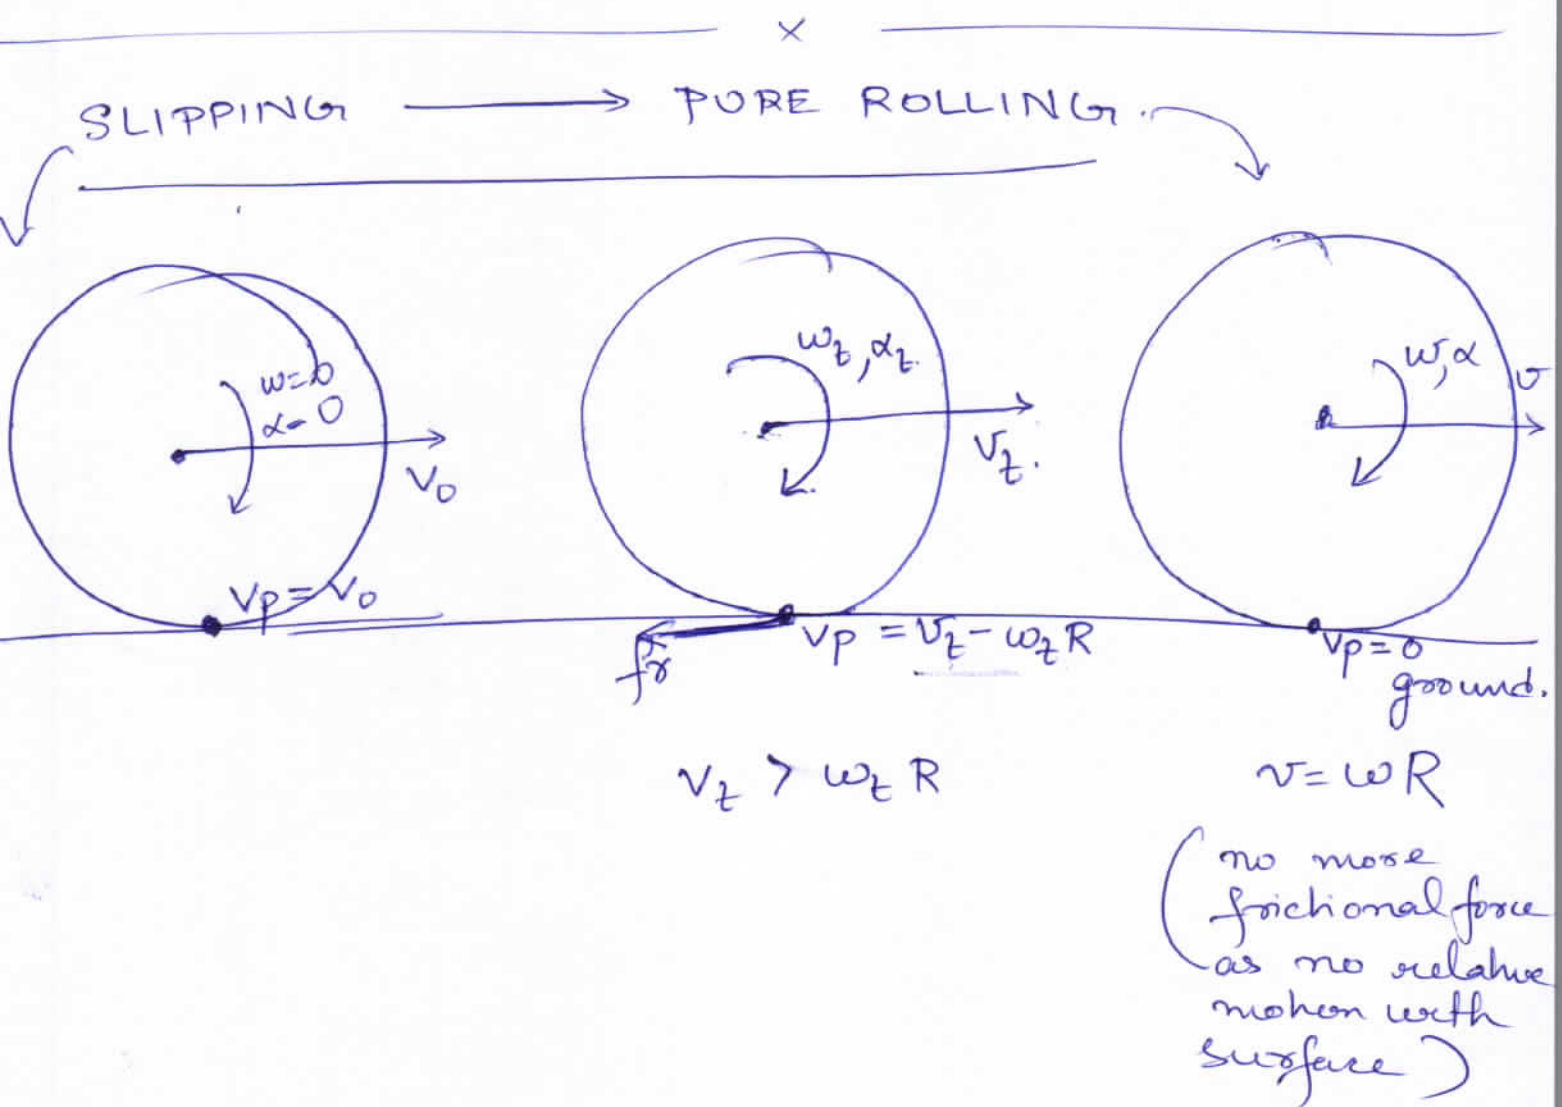 ×
SLIPPING → PURE ROLLING.
ω=0
α=0
V₀
Vp = V₀
ωt, αt.
Vt.
fr
Vp = Vt - ωt R
Vt > ωt R
ω, α
v
Vp = 0
ground.
v = ωR
(no more
frictional force
as no relative
motion with
surface)